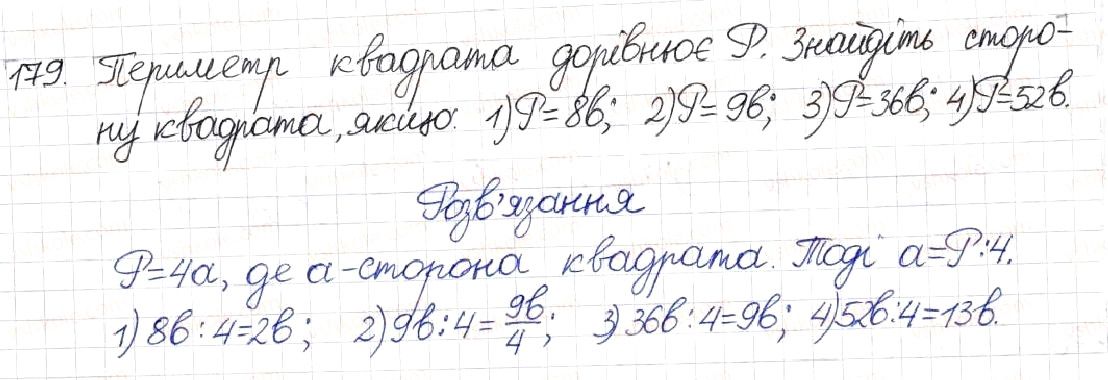 179. Периметр квадрата дорівнює P. Знайдіть сторо-
ну квадрата, якщо: 1) P=8b; 2) P=9b; 3) P=36b; 4) P=52b.
Розв'язання
P=4a, де a-сторона квадрата. Тоді a=P:4.
1) 8b:4=2b; 2) 9b:4=9b/4; 3) 36b:4=9b; 4) 52b:4=13b.